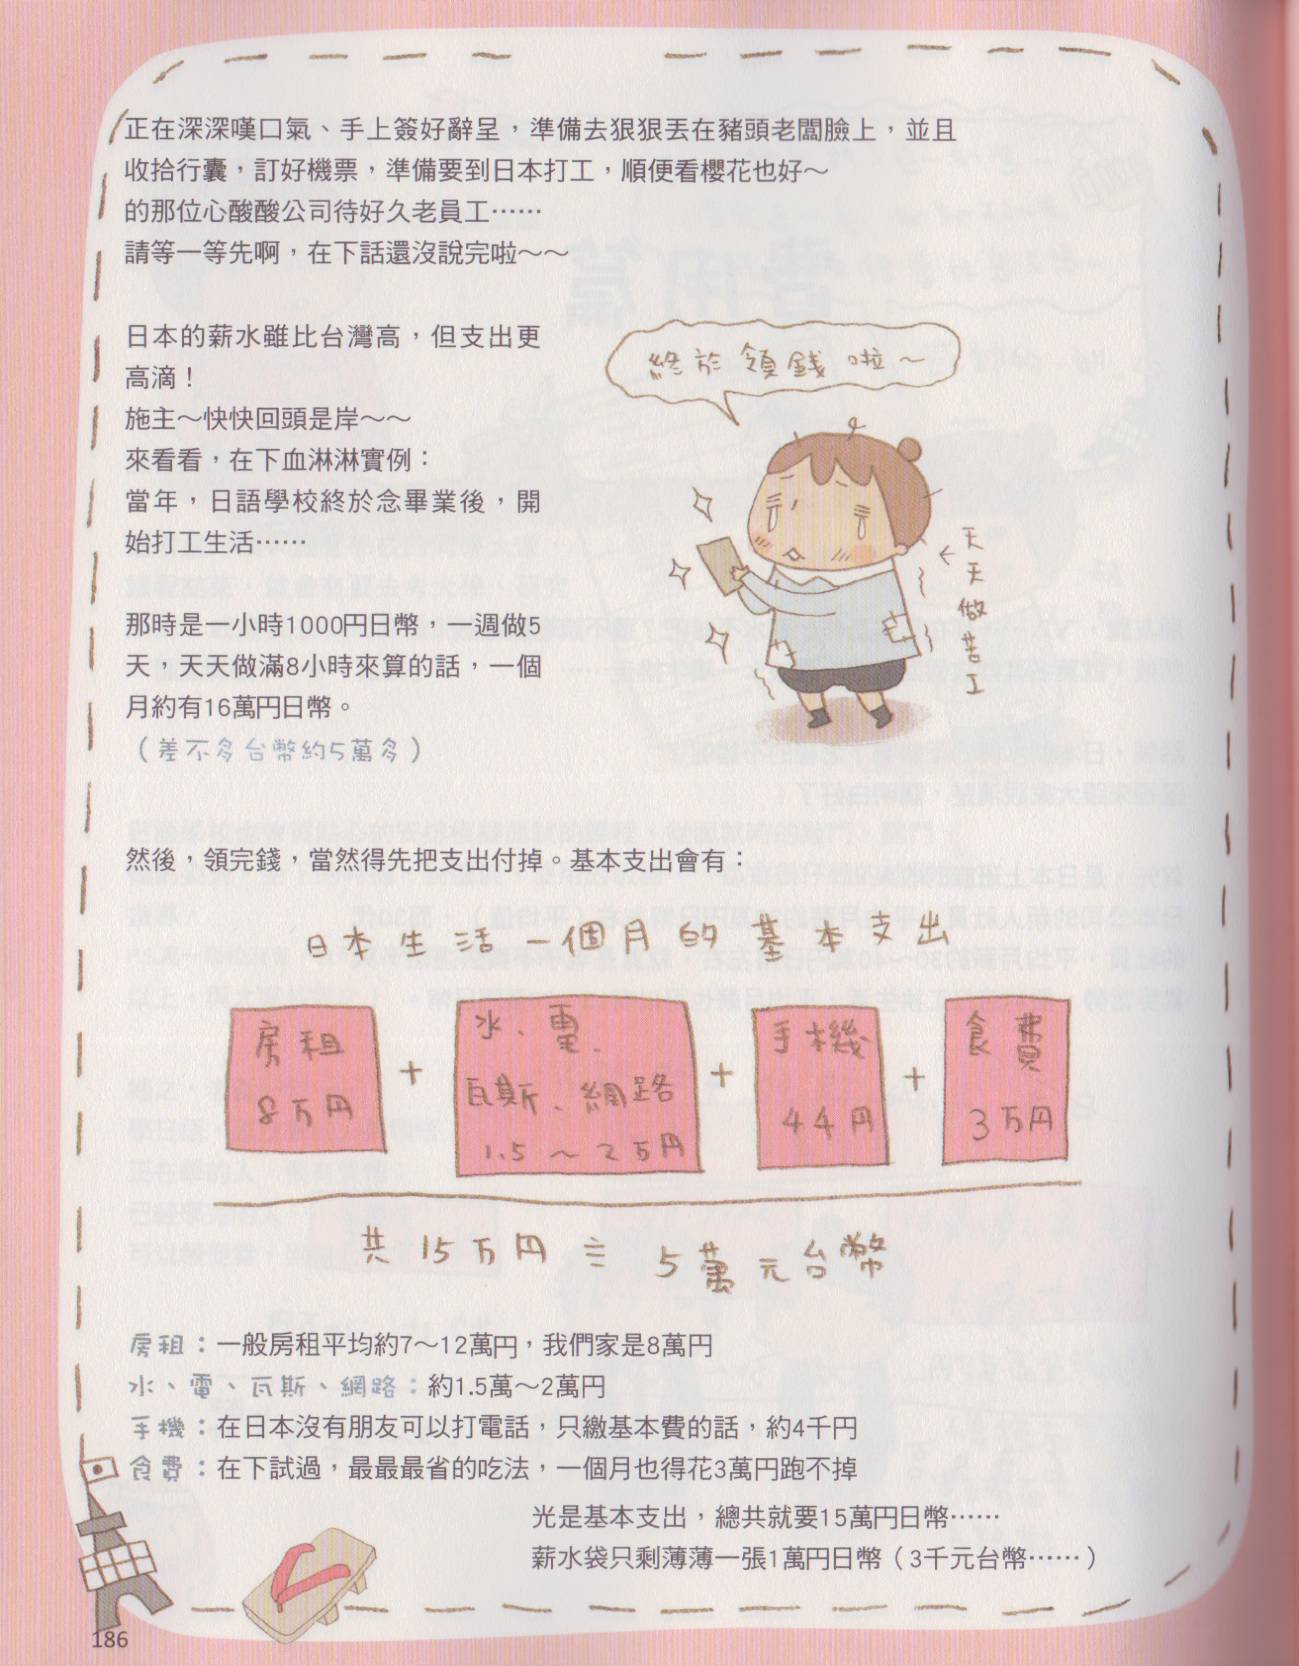 正在深深嘆口氣、手上簽好辭呈，準備去狠狠丟在豬頭老闆臉上，並且
收拾行囊，訂好機票，準備要到日本打工，順便看櫻花也好～
的那位心酸酸公司待好久老員工……
請等一等先啊，在下話還沒說完啦～～
日本的薪水雖比台灣高，但支出更
高滴！
施主～快快回頭是岸～～
來看看，在下血淋淋實例：
當年，日語學校終於念畢業後，開
始打工生活……
終於領錢啦～
←天天做苦工
那時是一小時1000円日幣，一週做5
天，天天做滿8小時來算的話，一個
月約有16萬円日幣。
（差不多台幣約5萬多）
然後，領完錢，當然得先把支出付掉。基本支出會有：
日本生活一個月的基本支出
房租
8万円
+
水、電、
瓦斯、網路
1.5～2万円
+
手機
4千円
+
食費
3万円
共15万円≡5萬元台幣
房租：一般房租平均約7～12萬円，我們家是8萬円
水、電、瓦斯、網路：約1.5萬～2萬円
手機：在日本沒有朋友可以打電話，只繳基本費的話，約4千円
食費：在下試過，最最最省的吃法，一個月也得花3萬円跑不掉
光是基本支出，總共就要15萬円日幣……
薪水袋只剩薄薄一張1萬円日幣（3千元台幣……）
186